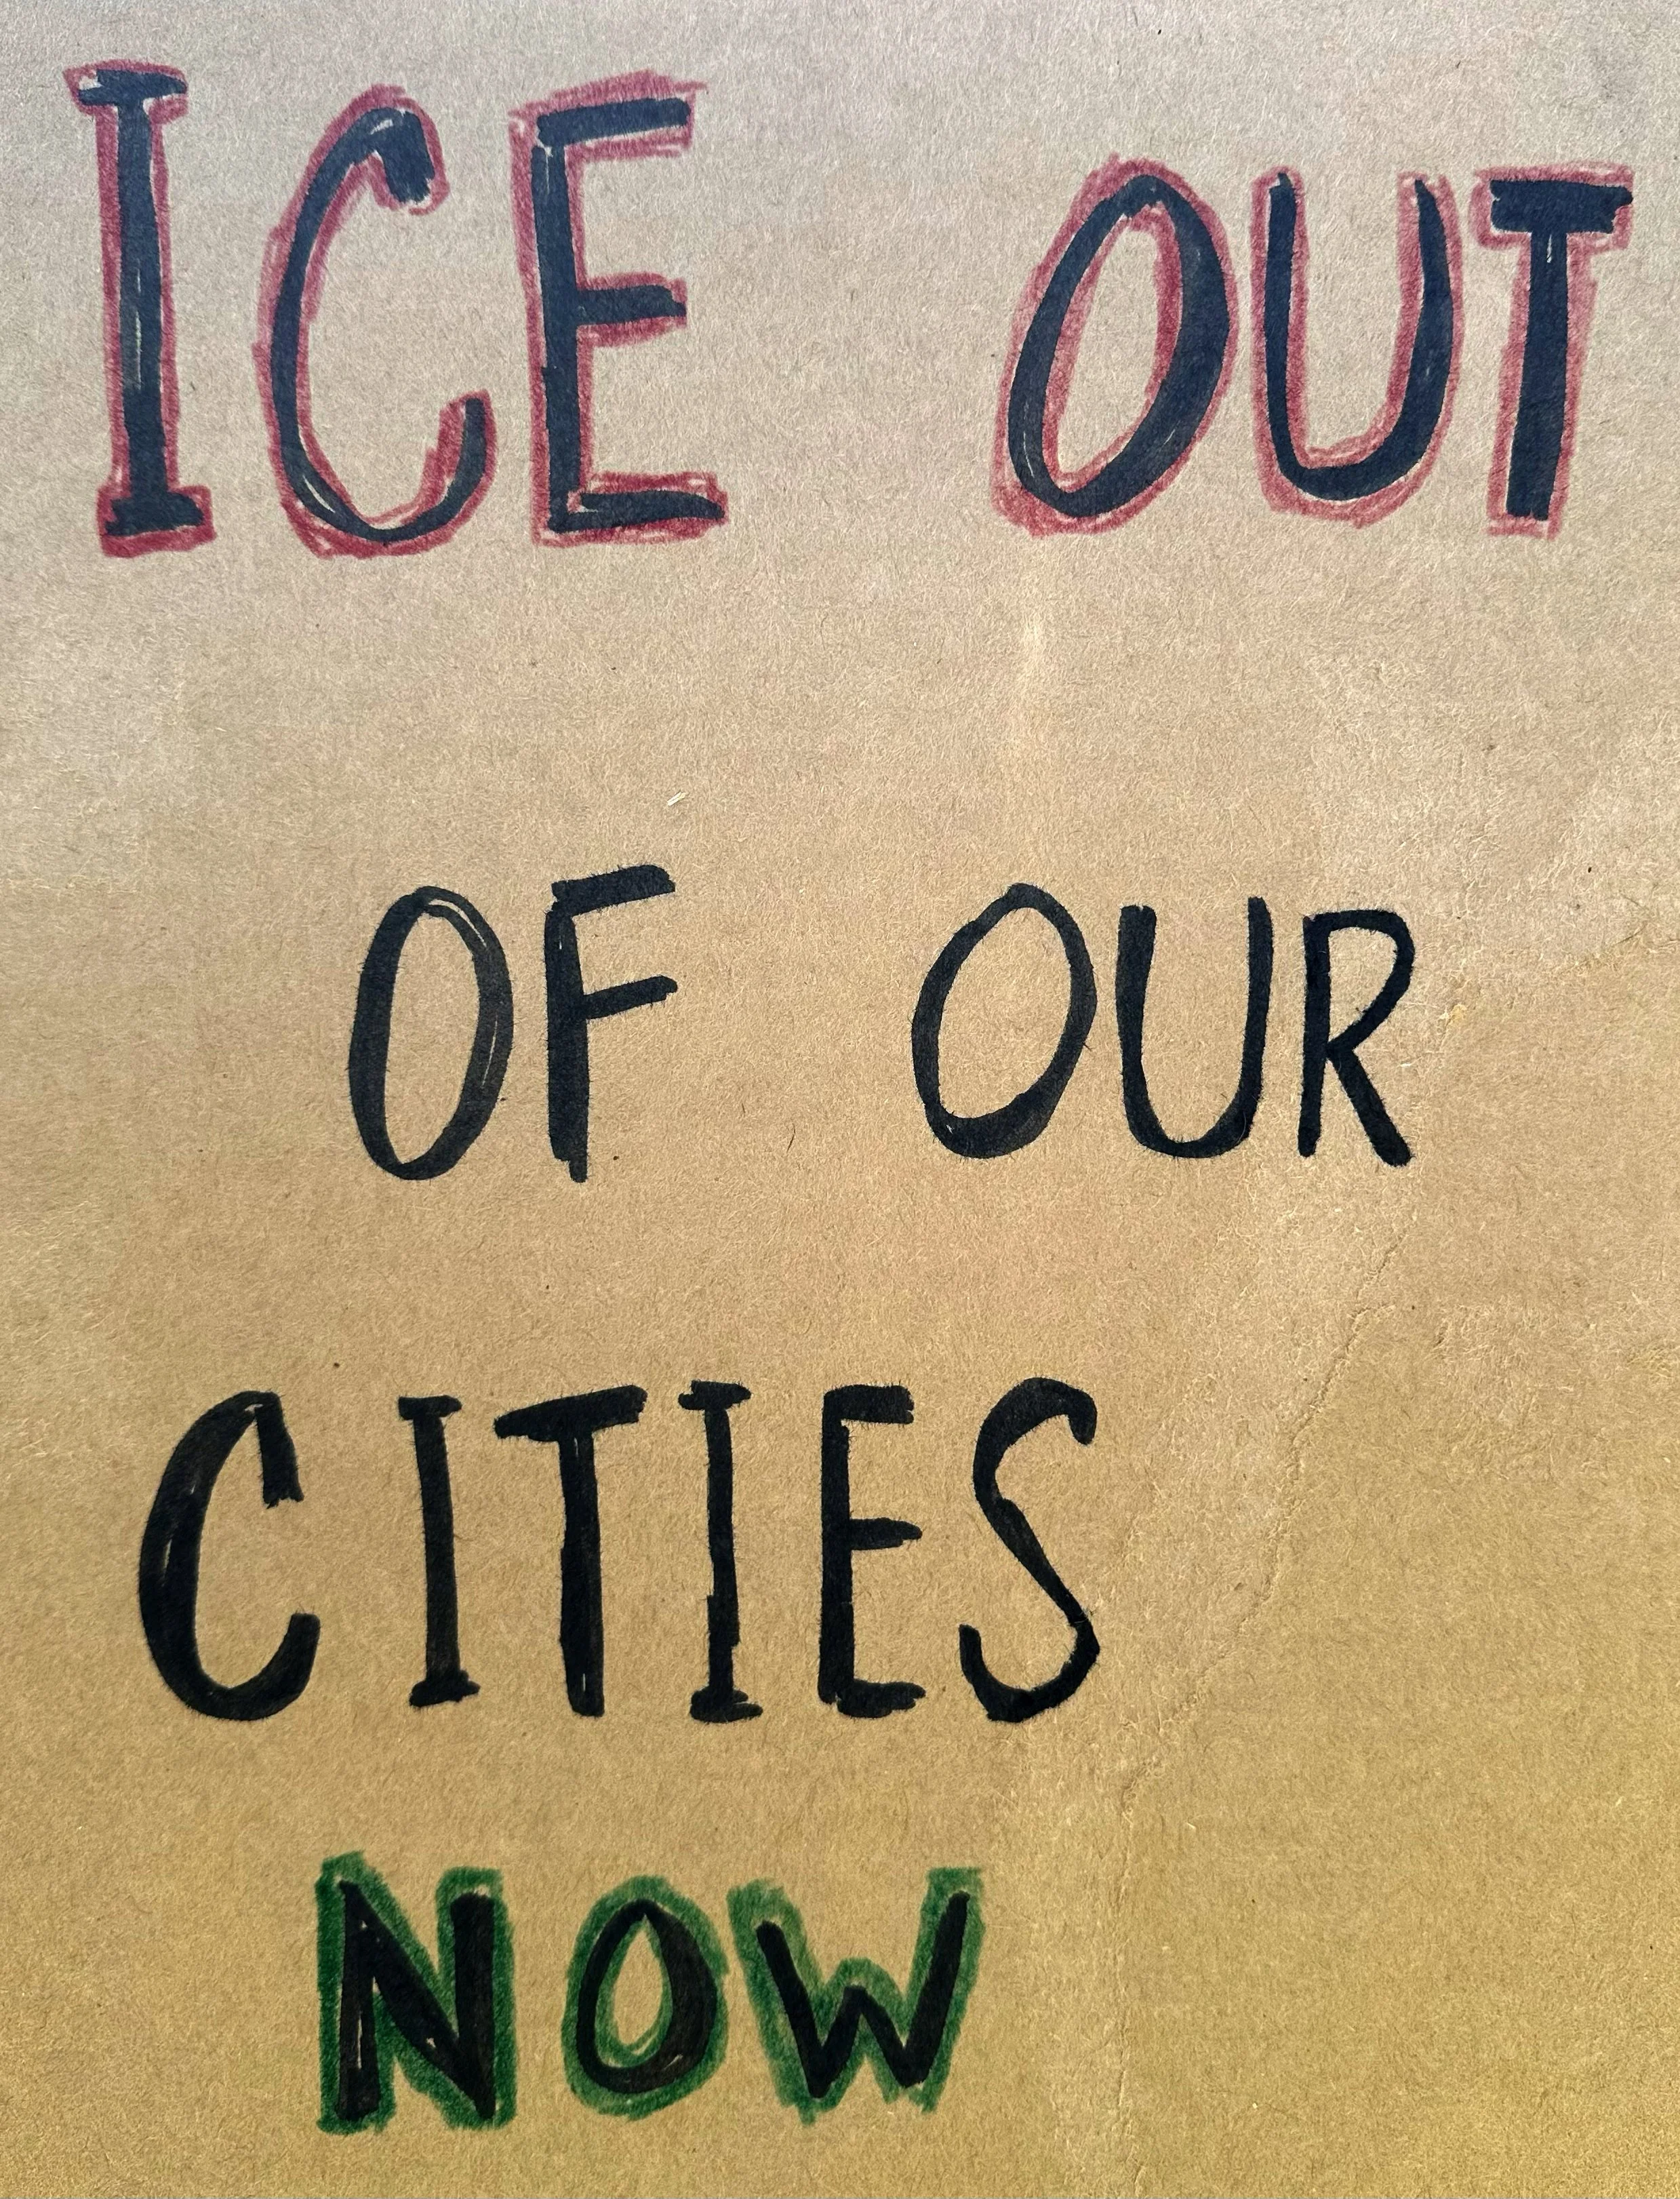 ICE OUT
OF OUR
CITIES
NOW